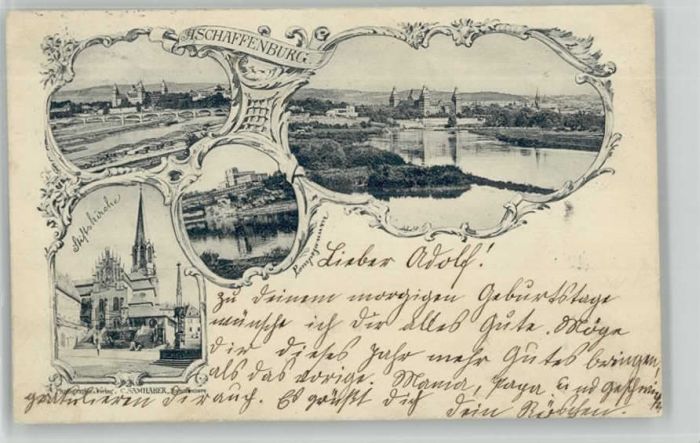 ASCHAFFENBURG.
Stiftskirche
Pompejanum
Lieber Adolf!
zu deinem morgigen Geburtstage
wünsche ich dir alles Gute. Möge
dir dieses Jahr mehr Gutes bringen,
als das vorige. Mama, Papa und Geschwister
gratulieren dir auch. Es grüßt dich dein Röschen.
Verlag C. SAMHABER, Aschaffenburg